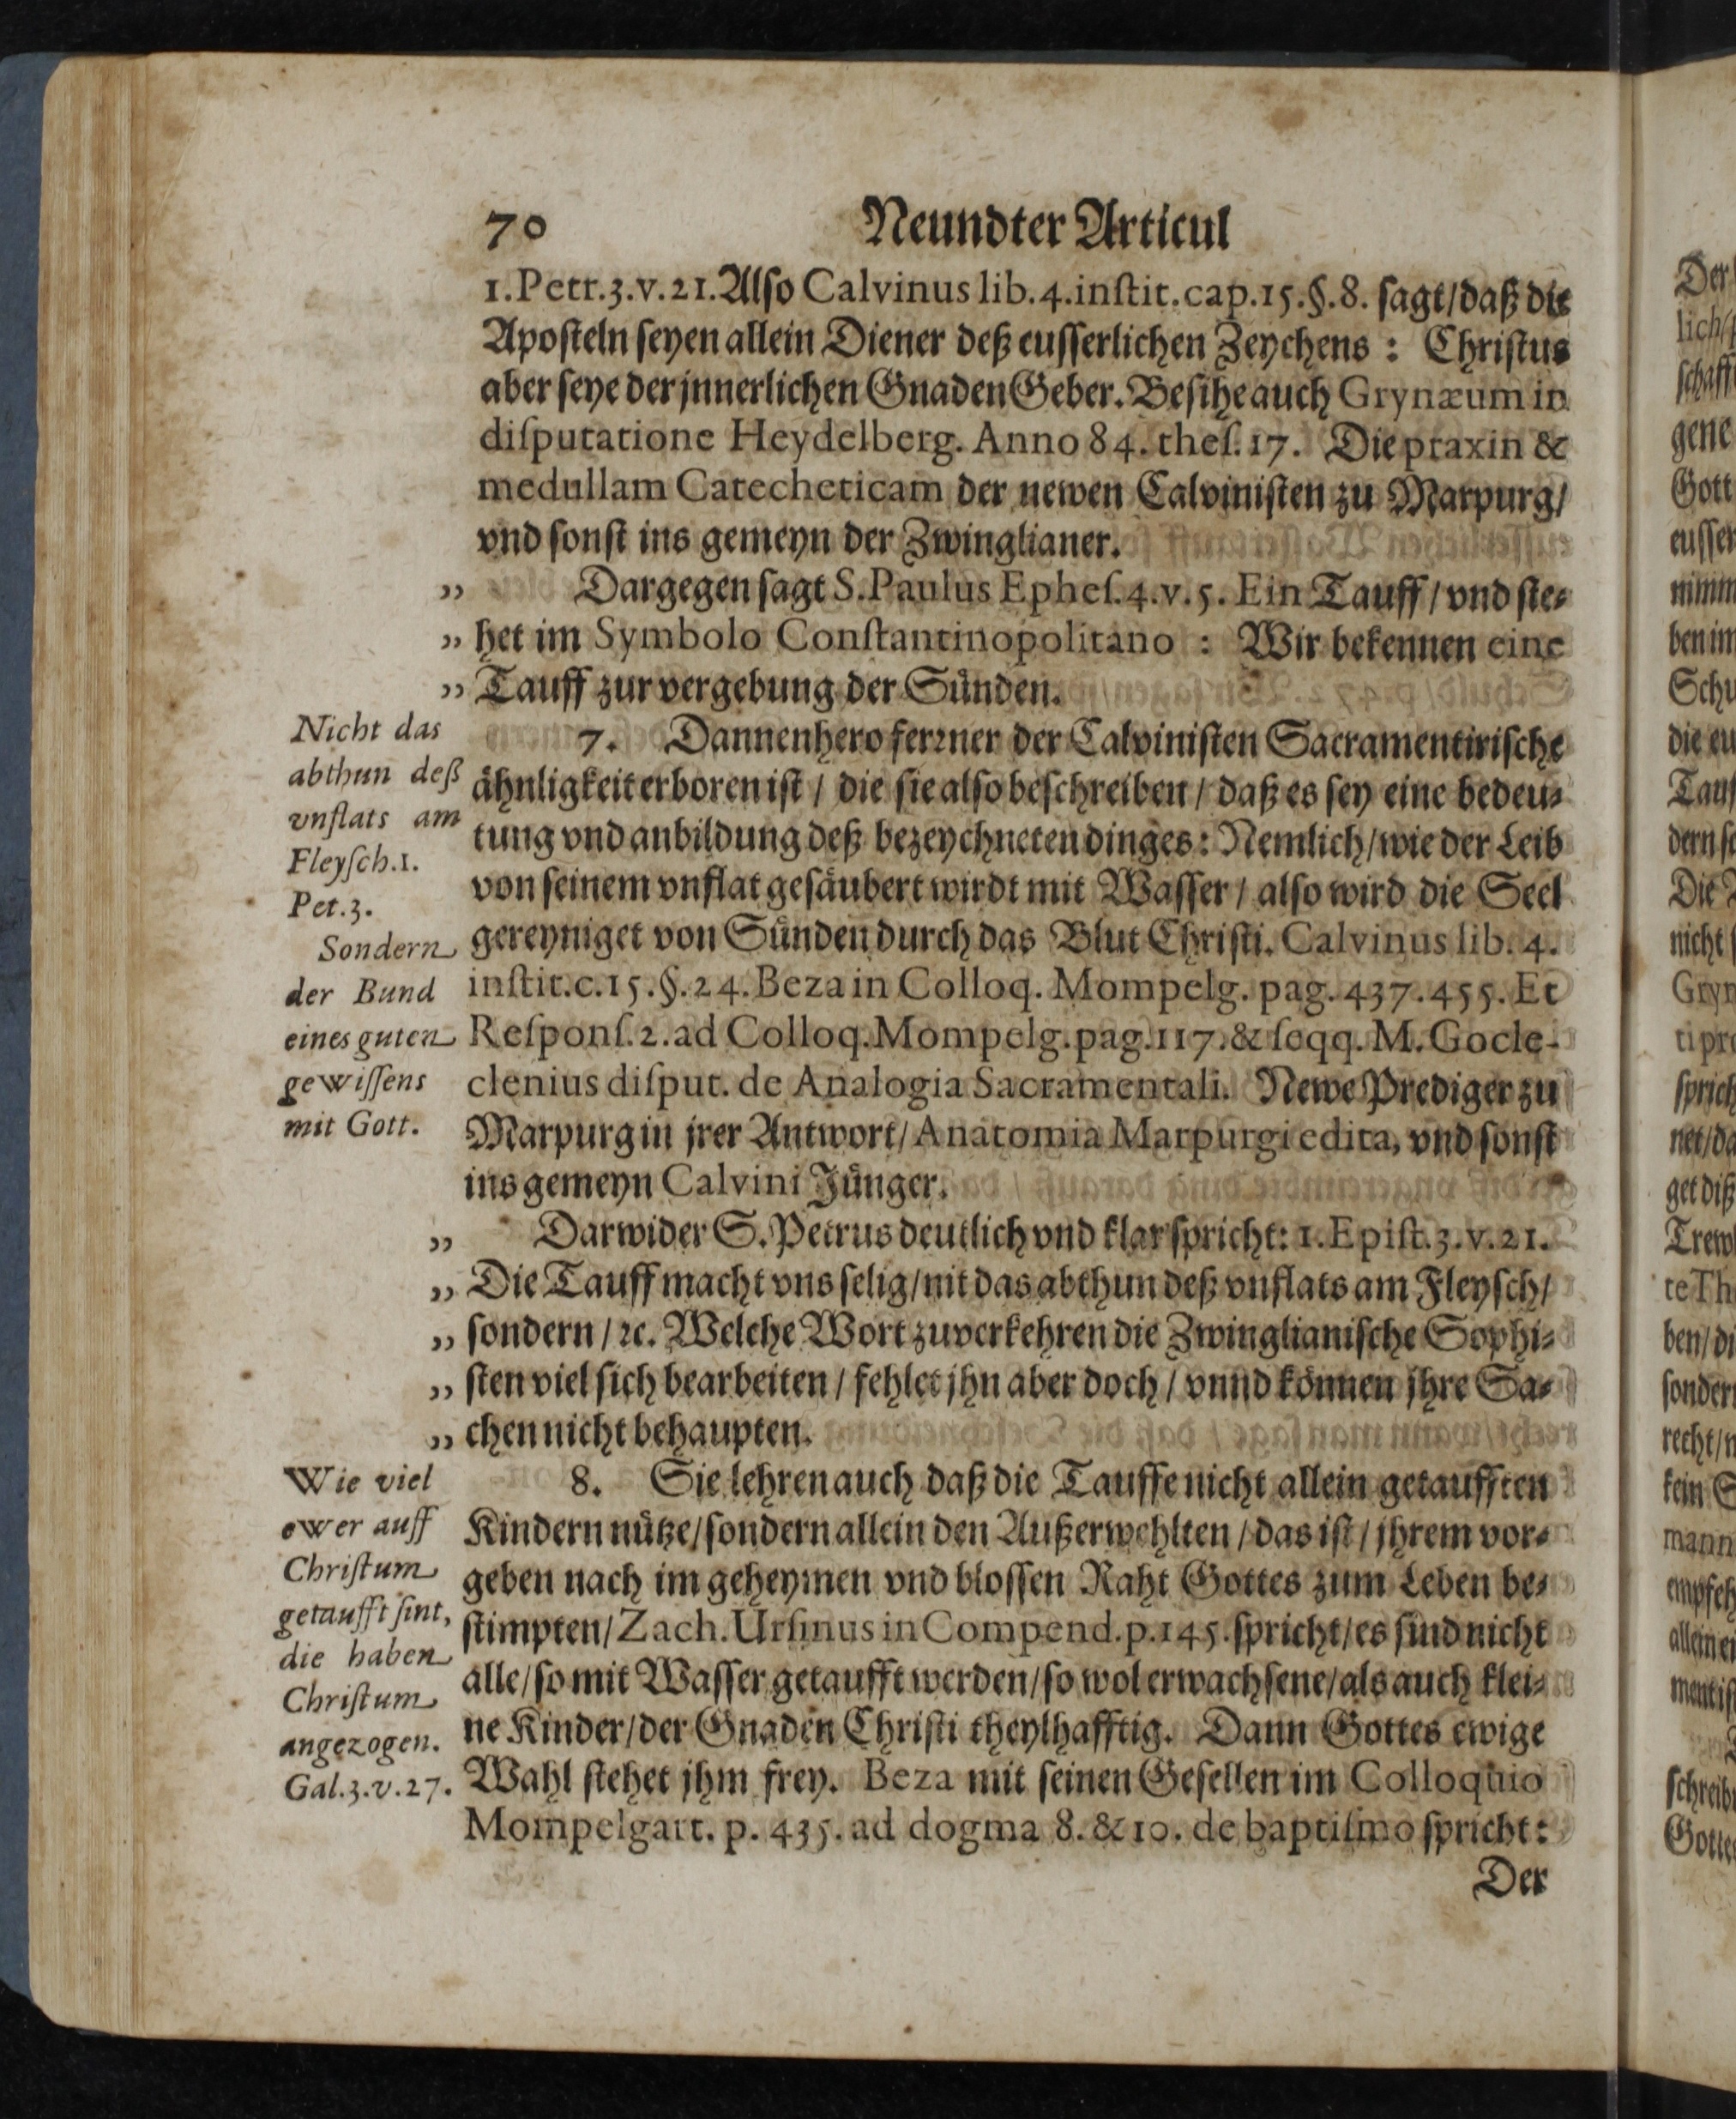 70 Neundter Articul
1. Petr. 3. v. 21. Also Calvinus lib. 4. instit. cap. 15. §. 8. sagt / daß die
Aposteln seyen allein Diener deß eusserlichen Zeychens : Christus
aber seye der jnnerlichen Gnaden Geber. Besihe auch Grynæum in
disputatione Heydelberg. Anno 84. thes. 17. Die praxin &
medullam Catecheticam der newen Calvinisten zu Marpurg /
vnd sonst ins gemeyn der Zwinglianer.
„ Dargegen sagt S. Paulus Ephes. 4. v. 5. Ein Tauff / vnd ste-
„ het im Symbolo Constantinopolitano : Wir bekennen eine
„ Tauff zur vergebung der Sünden.
Nicht das
abthun deß
vnflats am
Fleysch. 1.
Pet. 3.
Sondern
der Bund
eines guten
gewissens
mit Gott.
7. Dannenhero ferrner der Calvinisten Sacramentirische
ähnligkeit erboren ist / die sie also beschreiben / daß es sey eine bedeu-
tung vnd anbildung deß bezeychneten dinges : Nemlich / wie der Leib
von seinem vnflat gesäubert wirdt mit Wasser / also wird die Seel
gereyniget von Sünden durch das Blut Christi. Calvinus lib. 4.
instit. c. 15. §. 24. Beza in Colloq. Mompelg. pag. 437. 455. Et
Respons. 2. ad Colloq. Mompelg. pag. 117. & seqq. M. Gocle-
clenius disput. de Analogia Sacramentali. Newe Prediger zu
Marpurg in jrer Antwort / Anatomia Marpurgi edita, vnd sonst
ins gemeyn Calvini Jünger.
„ Darwider S. Petrus deutlich vnd klar spricht : 1. Epist. 3. v. 21.
„ Die Tauff macht vns selig / nit das abthun deß vnflats am Fleysch /
„ sondern / ꝛc. Welche Wort zuverkehren die Zwinglianische Sophi-
„ sten viel sich bearbeiten / fehlet jhn aber doch / vnnd können jhre Sa-
„ chen nicht behaupten.
Wie viel
ewer auff
Christum
getaufft sint,
die haben
Christum
angezogen.
Gal. 3. v. 27.
8. Sie lehren auch daß die Tauffe nicht allein getaufften
Kindern nütze / sondern allein den Außerwehlten / das ist / jhrem vor-
geben nach im geheymen vnd blossen Raht Gottes zum Leben be-
stimpten / Zach. Ursinus in Compend. p. 145. spricht / es sind nicht
alle / so mit Wasser getaufft werden / so wol erwachsene / als auch klei-
ne Kinder / der Gnaden Christi theylhafftig. Dann Gottes ewige
Wahl stehet jhm frey. Beza mit seinen Gesellen im Colloquio
Mompelgart. p. 435. ad dogma 8. & 10. de baptismo spricht :
Der